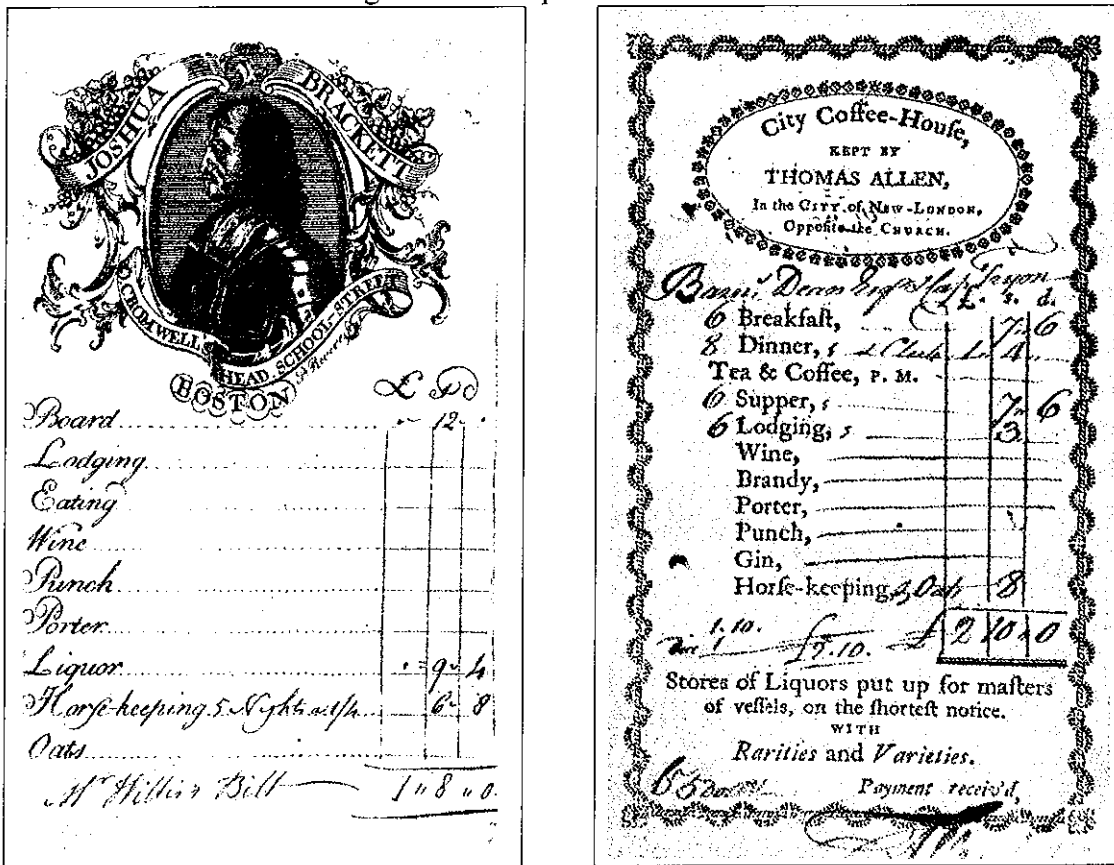 JOSHUA BRACKETT
CROMWELL HEAD SCHOOL-STREET
BOSTON
Board 12
Lodging
Eating
Wine
Punch
Porter
Liquor 9 4
Horse-keeping 5 Nights 6 8
Oats
Bill 1 8 0
City Coffee-Houſe,
KEPT BY
THOMAS ALLEN,
In the CITY of NEW-LONDON,
Oppoſite the CHURCH.
Dean Esqr
£. s. d.
6 Breakfaſt, 7 6
8 Dinner, s & Club 1 4
Tea & Coffee, P. M.
6 Supper, s 7 6
6 Lodging, s 3
Wine,
Brandy,
Porter,
Punch,
Gin,
Horſe-keeping & Oats 8
1.10.
1 £2.10. £ 2 10 0
Stores of Liquors put up for maſters
of veſſels, on the ſhorteſt notice.
WITH
Rarities and Varieties.
Payment receiv'd,